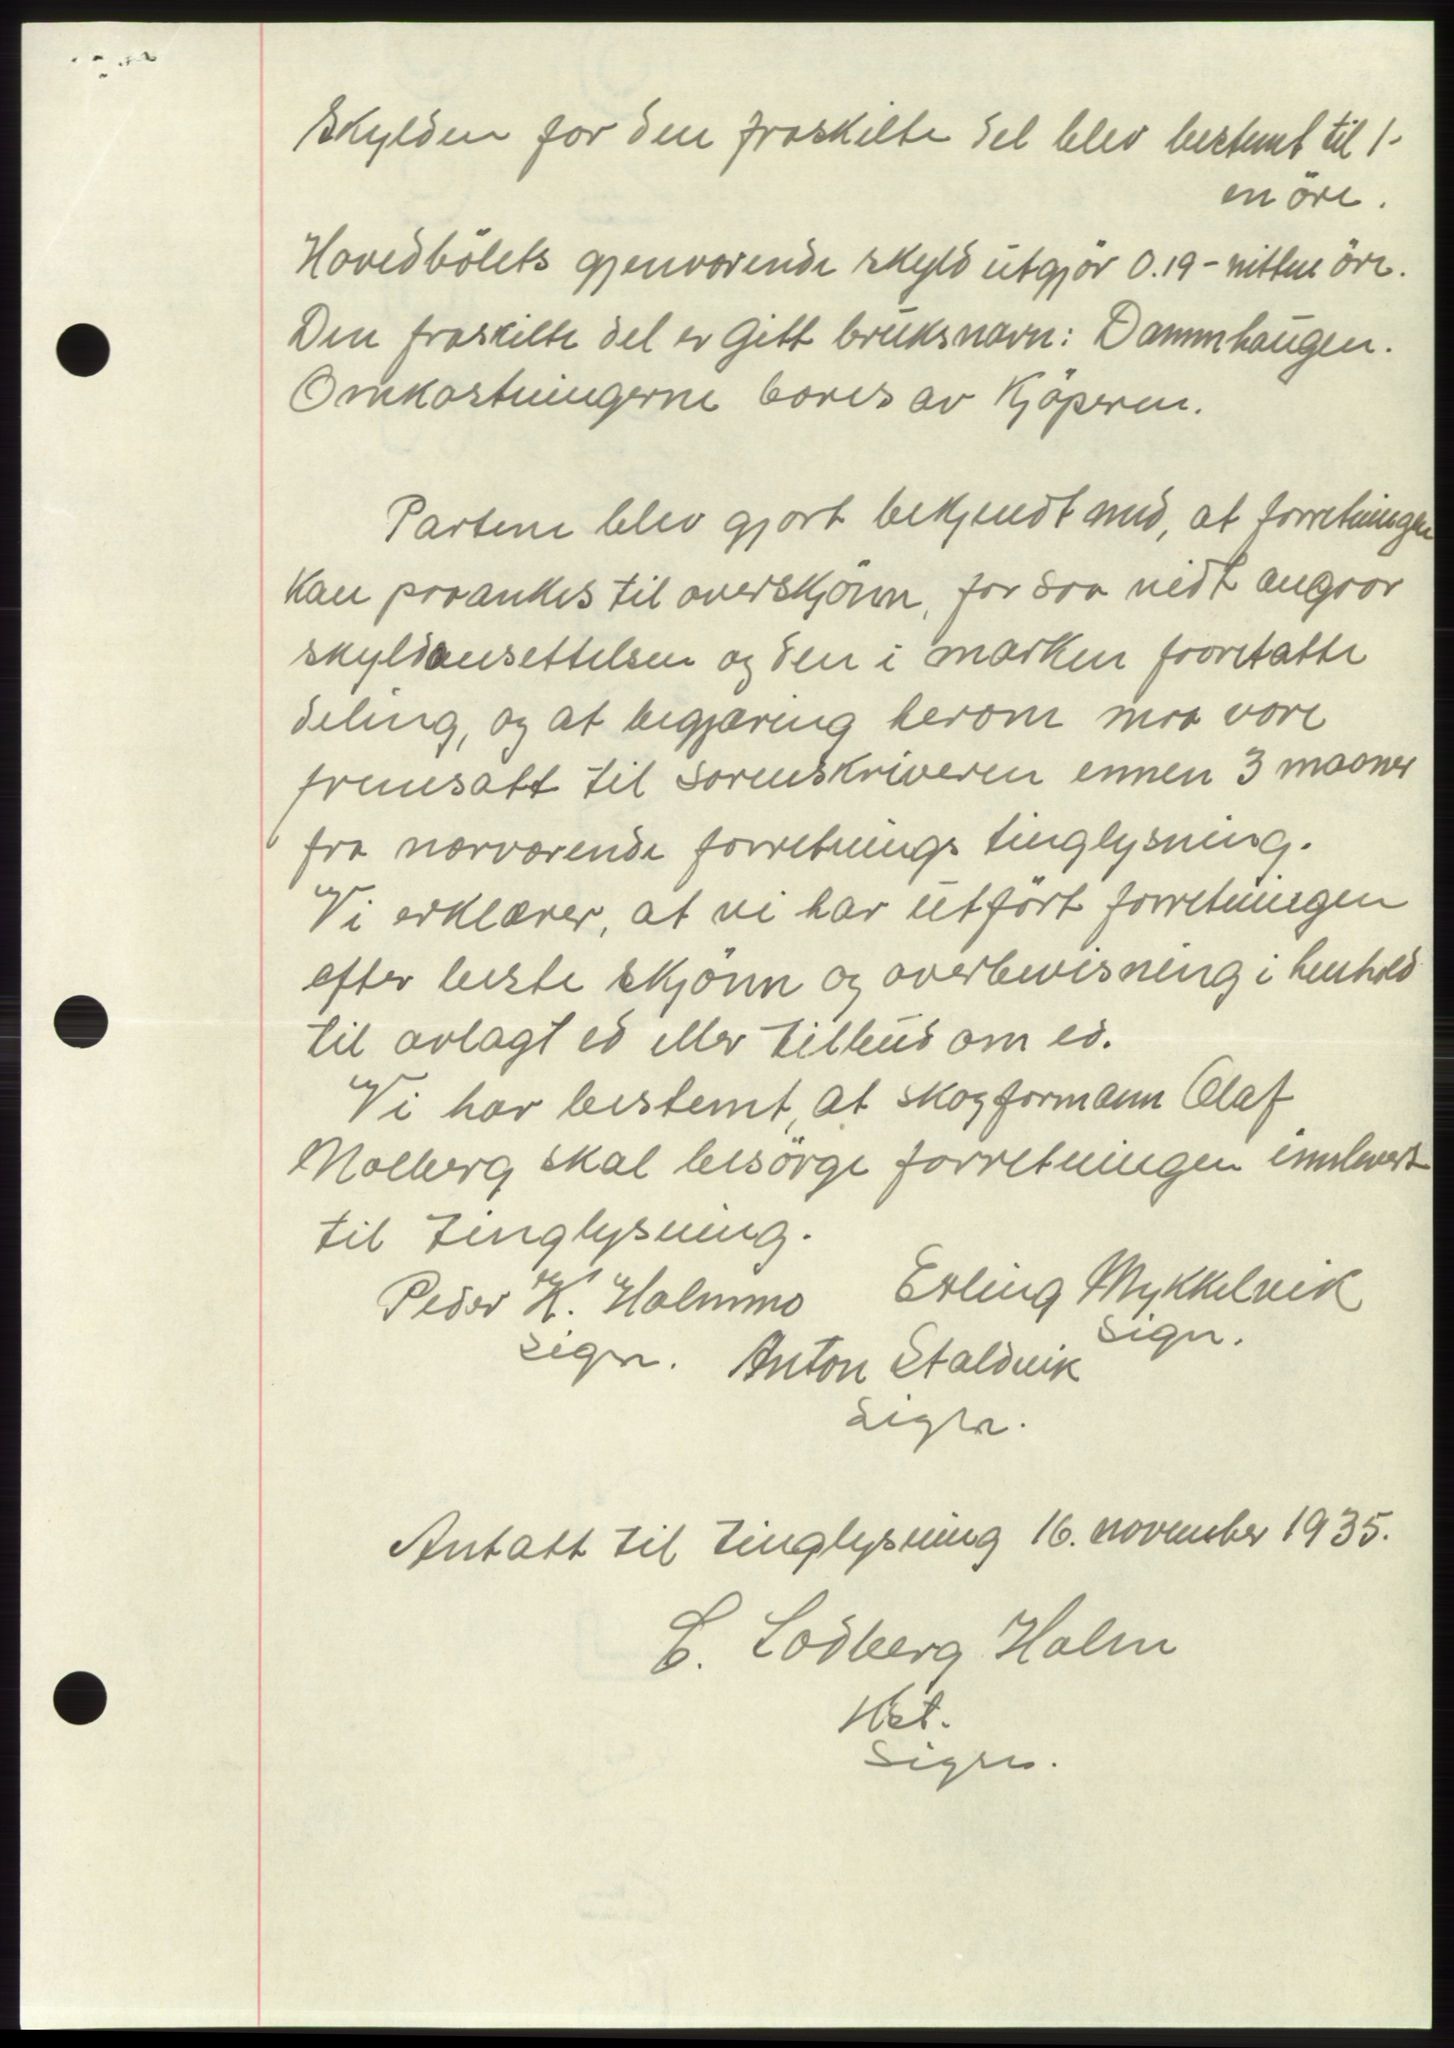 Skylden for den fraskilte del blev bestemt til 1-
en öre.
Hovedbölets gjenværende skyld utgjör 0.19 - nitten öre.
Den fraskilte del er gitt bruksnavn: Dammhaugen.
Omkostningerne bæres av kjöperen.
Partene blev gjort bekjendt med, at forretningen
kan paaankes til overskjönn, for saa vidt angaar
skyldansettelsen og den i marken foretatte
deling, og at begjæring herom maa være
fremsatt til sorenskriveren ennen 3 maaner
fra nærværende forretnings tinglysning.
Vi erklærer, at vi har utfört forretningen
efter beste skjönn og overbevisning i henhold
til avlagt ed eller tilbud om ed.
Vi har bestemt, at skogformann Olaf
Moeberg skal besörge forretningen innlevert
til tinglysning.
Peder K. Holmmo Erling Mykkelvik
sign. Anton Staldvik sign.
sign.
Antatt til tinglysning 16. november 1935.
C. Lodberg Holm
Kst.
sign.